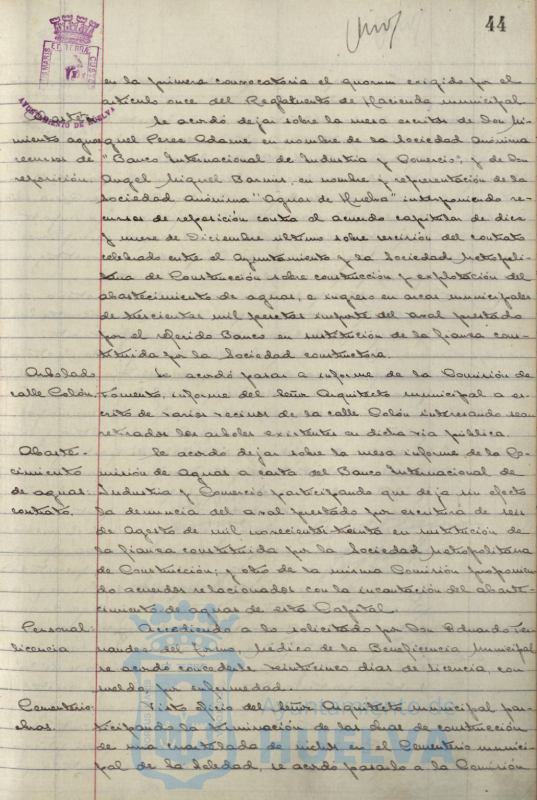 44
en la primera convocatoria el quorum exigido por el
artículo once del Reglamento de Hacienda municipal
Se acordó dejar sobre la mesa escritos de Don Mi-
miento aguas guel Perez Adame en nombre de la Sociedad Anónima
recursos de "Banco Internacional de Industria y Comercio", y de Don
reposición. Angel Miguel en nombre y representación de la
Sociedad Anónima "Aguas de Huelva" interponiendo re-
cursos de reposición contra el acuerdo capitular de diez
y nueve de Diciembre último sobre rescisión del contrato
celebrado entre el Ayuntamiento y la Sociedad Metropoli-
tana de Construcción sobre construcción y explotación del
abastecimiento de aguas, e ingreso en arcas municipales
de trescientas mil pesetas importe del aval prestado
por el referido Banco en sustitución de la fianza cons-
tituida por la Sociedad constructora.
Arbolado Se acordó pasar a informe de la Comisión de
calle Colón. Fomento, informe del Señor Arquitecto municipal a es-
crito de varios vecinos de la calle Colón interesando sean
retirados los arboles existentes en dicha vía pública.
Abaste- Se acordó dejar sobre la mesa informe de la Co-
cimiento misión de Aguas a carta del Banco Internacional de
de aguas: Industria y Comercio participando que deja sin efecto
contrato. la denuncia del aval prestado por escritura de seis
de Agosto de mil novecientos treinta en sustitución de
la fianza constituida por la Sociedad Metropolitana
de Construcción; y otro de la misma Comisión proponien-
do acuerdos relacionados con la incautación del abaste-
cimiento de aguas de esta Capital.
Personal: Accediendo a lo solicitado por Don Eduardo Fer-
licencia nandez del Torno, Médico de la Beneficencia Municipal
se acordó concederle veinticinco días de licencia, con
sueldo por enfermedad.
Cementerio: Visto oficio del Señor Arquitecto municipal par-
obras. ticipando la terminación de las obras de construcción
de una cuartelada de nichos en el Cementerio munici-
pal de la Soledad, se acordó pasarlo a la Comisión
AYUNTAMIENTO DE HUELVA
Ayuntamiento de
HUELVA